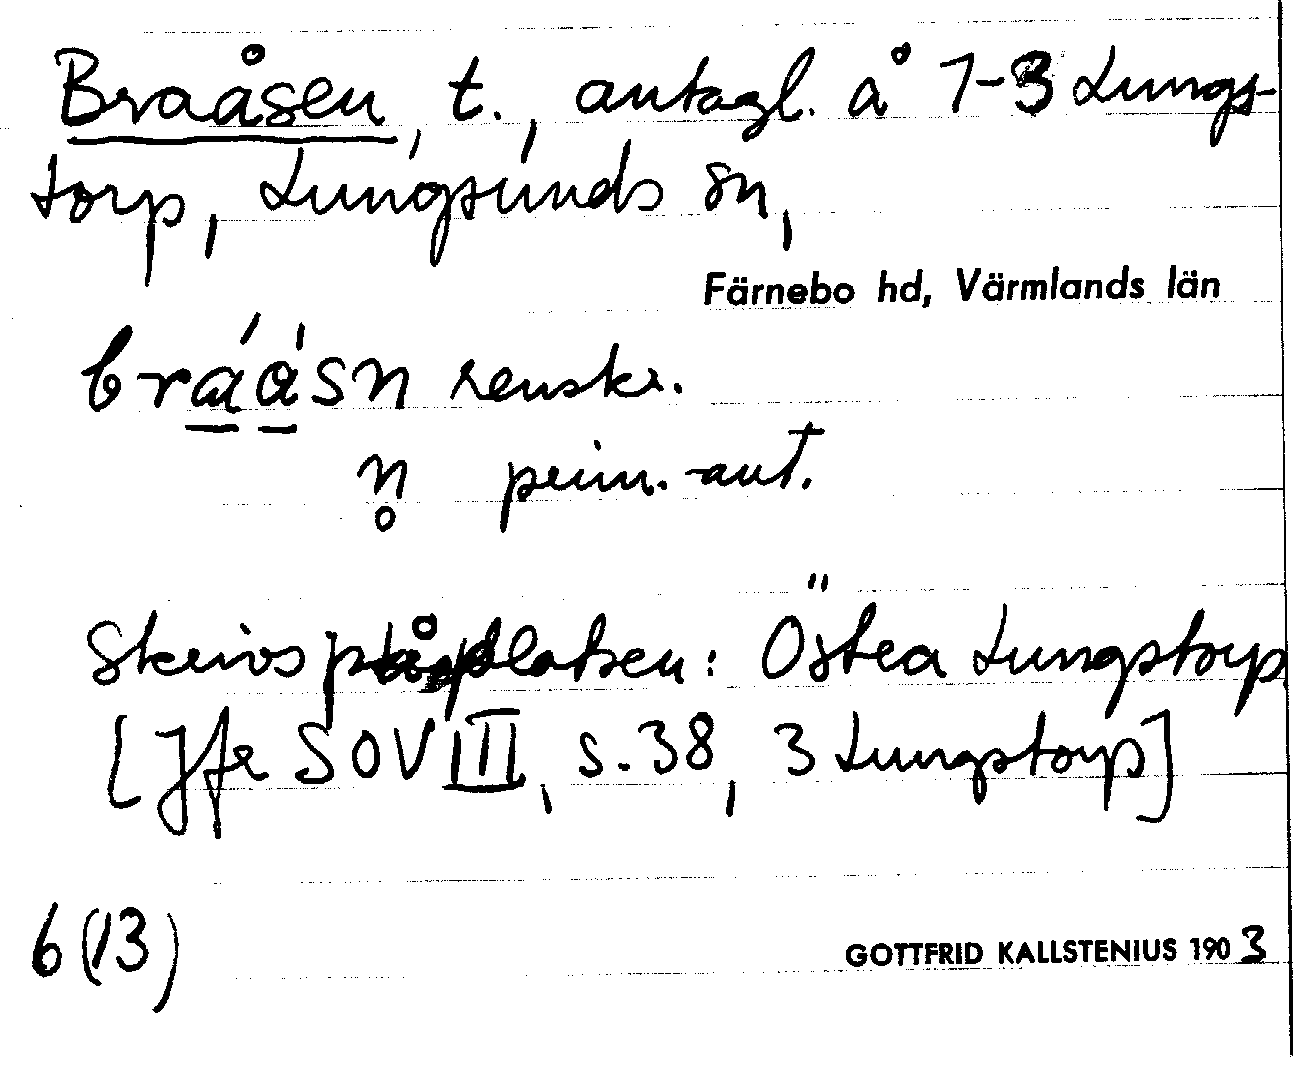 Braåsen, t., antagl. å 1-3 Lungs-
torp, Lungsunds sn,
Färnebo hd, Värmlands län
renskr.
n̥ prim.-ant.
Skrivs på platsen: Östra Lungstorp
[Jfr SOV III, s. 38, 3 Lungstorp]
6 (13)
GOTTFRID KALLSTENIUS 1903